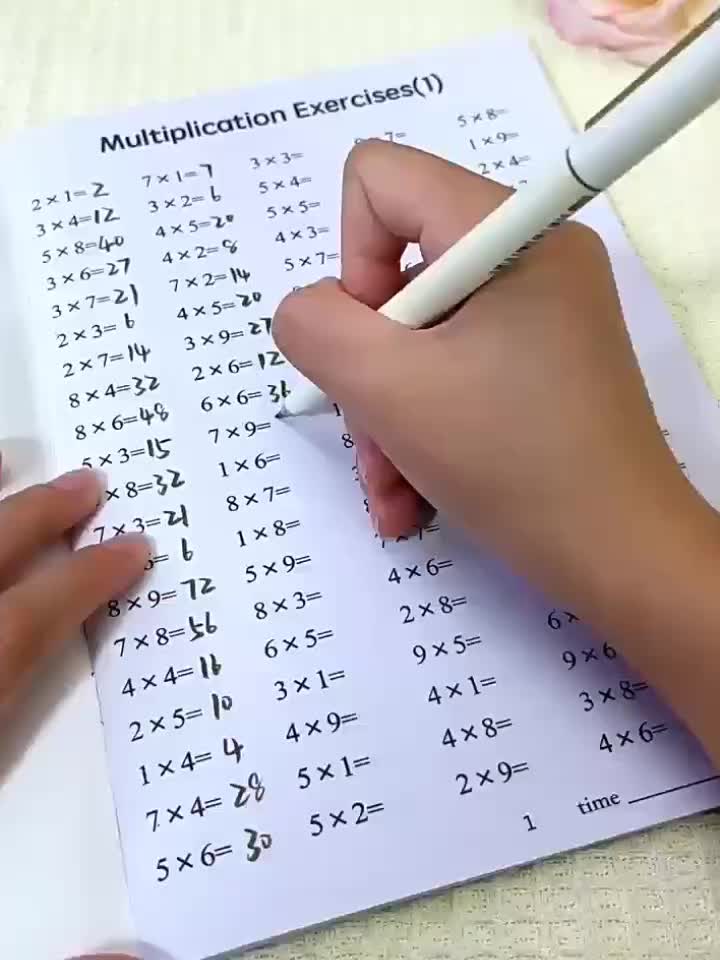 Multiplication Exercises(1)
2 × 1=2
3 × 4=12
5 × 8=40
3 × 6=27
3 × 7=21
2 × 3= 6
2 × 7=14
8 × 4=32
8 × 6=48
5 × 3=15
× 8=32
7 × 3=21
= 6
8 × 9=72
7 × 8=56
4 × 4=16
2 × 5=10
1 × 4= 4
7 × 4=28
5 × 6=30
7 × 1=7
3 × 2=6
4 × 5=20
4 × 2=8
7 × 2=14
4 × 5=20
3 × 9=27
2 × 6=12
6 × 6=36
7 × 9=
1 × 6=
8 × 7=
1 × 8=
5 × 9=
8 × 3=
6 × 5=
3 × 1=
4 × 9=
5 × 1=
5 × 2=
3 × 3=
5 × 4=
5 × 5=
4 × 3=
5 × 7=
4 × 6=
2 × 8=
9 × 5=
4 × 1=
4 × 8=
2 × 9=
7=
6 ×
9 × 6
3 × 8=
4 × 6=
5 × 8=
1 × 9=
2 × 4=
1
time